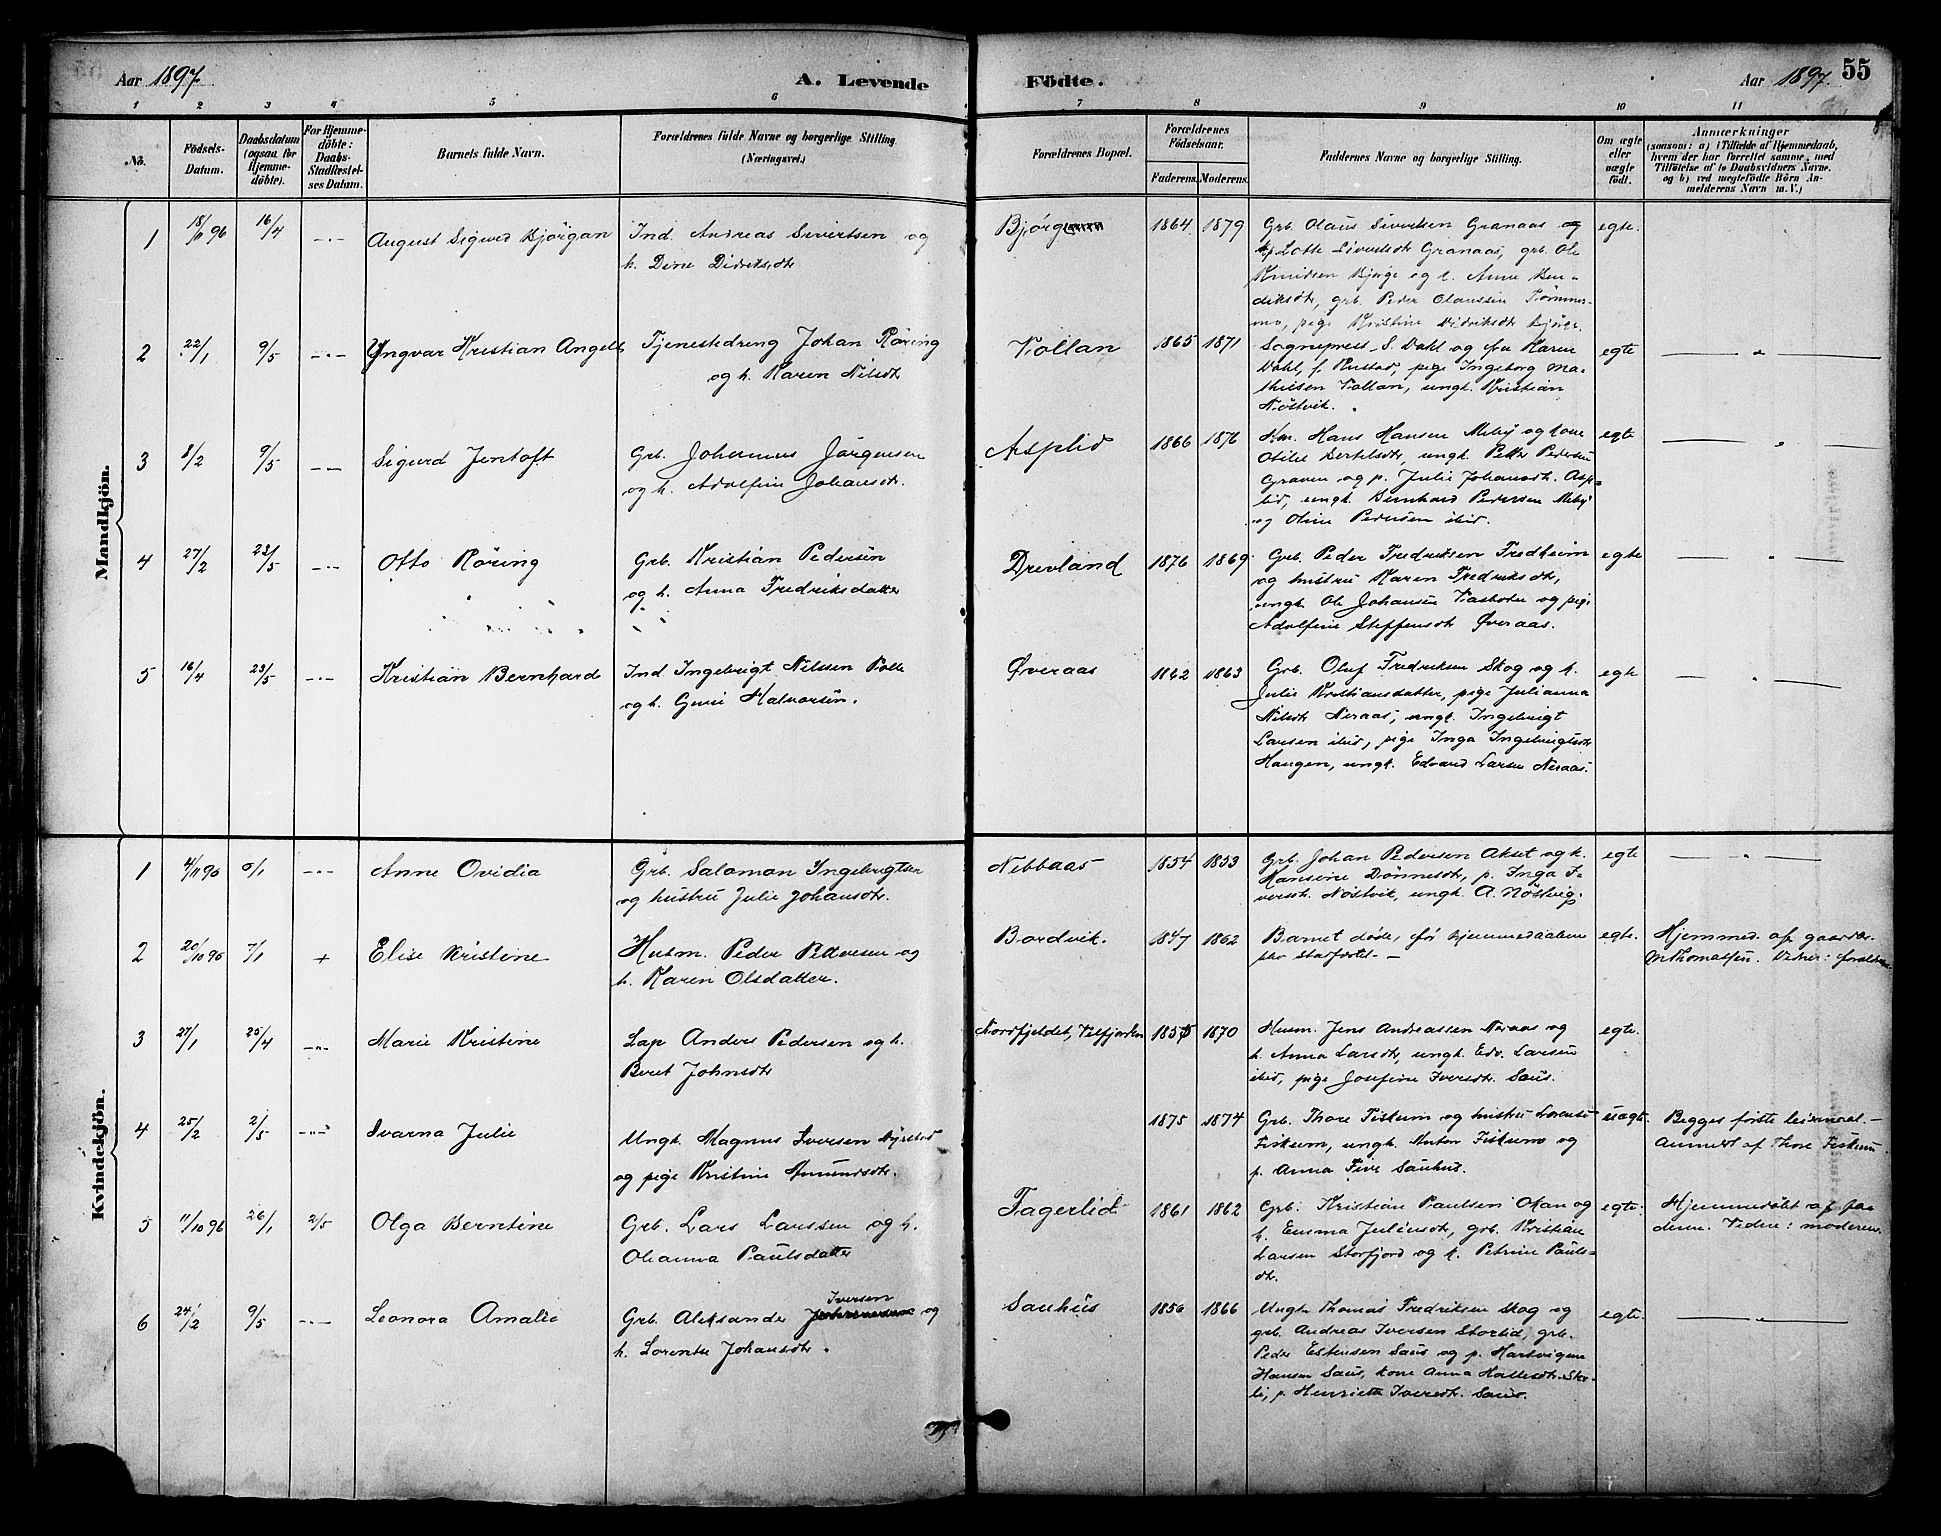 Aar 1897.
A. Levende
Födte.
Aar 1897.
55
1 2 3 4 5 6 7 8 9 10 11
No.
Födsels-
Datum.
Daabsdatum
(ogsaa for
Hjemme-
döbte).
For Hjemme-
döbte:
Daabs-
Stadfestel-
ses Datum.
Barnets fulde Navn.
Forældrenes fulde Navne og borgerlige Stilling
(Næringsvei.)
Forældrenes Bopæl.
Forældrenes
Födselsaar.
Faderens. Moderens.
Faddernes Navne og borgerlige Stilling.
Om ægte
eller
uægte
födt.
Anmærkninger
(saasom: a) i Tilfælde af Hjemmedaab,
hvem der har forrettet samme, med
Tilföielse af to Daabsvidners Navne.
og b) ved uegtefödte Börn An-
melderens Navn m. V.)
Mandkjön.
1 18/11 96 16/4 -"- August Sigurd Bjørgan
Ind. Andreas Sivertsen og
h. Dine Didriksdtr
1864 1879
Grb Olaus Sivertsen Granaas og
Lotte Sivertsdt Granaas, grb. Ole
Knudsen Bjørge og h. Anne Ben-
diksdtr, grb. Peder Olaussen Tömmer-
mo, pige Kristine Didriksdtr
egte.
2 22/1 9/5 -"- Yngvar Kristian Angell
Tjenestedreng Johan Röring
og h. Karen Nilsdtr
Vollan 1865 1871
Sogneprest S. Dahl og fru Karen
Dahl, f. Rustad, pige Ingeborg Ma-
thisen Vollan, ungk. Kristian
Nöstvik.
egte — " —
3 8/2 9/5 -"- Sigurd Jentoft
Grb. Johannes Jörgensen
og h. Adolfine Johansdtr.
Asplid 1866 1876
Km. Hans Hansen Meby og kone
Otilie Bertelsdtr, ungk. Petter Pedersen
Graven og p. Julie Johansdtr. Asp-
lid, ungk. Bernhard Pedersen Meby
og Oline Pedersen ibid.
egte — " —
4 27/2 23/5 -"- Otto Röring
Grb. Kristian Pedersen
og h. Anna Fredriksdatter
Drevland 1876 1869
Grb. Peder Fredriksen Fredheim
og hustru Karen Fredriksdtr,
ungk. Ole Johansen og pige
Adolfine Steffensdtr Øveraas.
egte — " —
5 16/4 23/5 -"- Kristian Bernhard
Ind Ingebrigt Nilssen
og h. Halvorsen.
Øveraas 1862 1863
Grb. Oluf Fredriksen Skog og h.
Julie Kristiansdatter, pige Julianna
Nilsdtr Neraas, ungk. Ingebrigt
Larsen ibid, pige Inga Ingebrigtsdtr
Haugen, ungk. Edvard Larsen Neraas.
egte — " —
Kvindekjön.
1 4/11 96 6/1 -"- Anne Ovidia
Grb. Salamon Ingebrigtsen
og hustru Julie Johansdtr.
Nebbaas 1854 1853
Grb. Johan Pedersen Akset og h.
Hansine Dønnesdtr, p. Inga I-
versdtr. Nöstvik, ungk. A. Nöstvig.
egte — " —
2 20/10 96 7/1 + Elise Kristine
Husm. Peder Pettersen og
h. Karen Olsdatter.
Bordvik. 1847 1862
Barnet døde, før hjemmedaaben
blev stadfæstet. —
egte.
Hjemmed. af gaardbr.
M Thomassen. Vidner: forældrene
3 27/1 25/4 -"- Marie Kristine
Lap Anders Pedersen og h.
Beret Johnsdtr
Nordfjeldet, Velfjorden 1855 1870
Husm. Jens Andreassen Neraas og
h. Anna Larsdtr, ungk. Edv. Larsen
ibid, pige Josefine Iversdtr. Saus.
egte.
4 25/2 2/5 -"- Svarna Julie
Ungk. Magnus Iversen Nyrstad
og pige Kristine Amundsdtr.
1875 1874
Grb. Thore Fiskum og hustru Lorense
Fiskum, ungk. Anton Fiskum og
p. Anna Sauhus.
uægte.
Begges første leiermaal. —
Anmeldt af Thore Fiskum
5 11/10 96 26/1 2/5 Olga Berntine
Grb. Lars Larssen og h.
Olianna Paulsdatter
Fagerlid 1861 1862
Grb. Kristian Paulsen Okan og
h. Emma Juliusdtr, grb. Kristian
Larsen Storfjord og h. Petrine Pauls-
dtr.
egte.
Hjemmedöbt af fa-
deren. Vidne: moderen.
6 24/2 9/5 -"- Leonora Amalie
Iversen
Grb. Aleksander og
h. Lorentse Johansdtr.
Sauhus 1856 1866
Ungk Thomas Fredriksen Skog og
grb. Andreas Iversen Storlid, grb.
Peder Estensen Saus og p. Hartvigine
Hansen Saus, kone Anna Hallesdtr. Stor-
li, p. Henriette Iversdtr. Saus.
egte. — " —